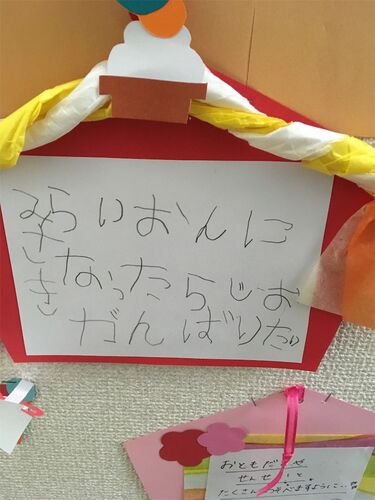 らいおんに
なったらじお
がんばりたい
みさき
おともだちや
せんせいと
たくさん
ますように